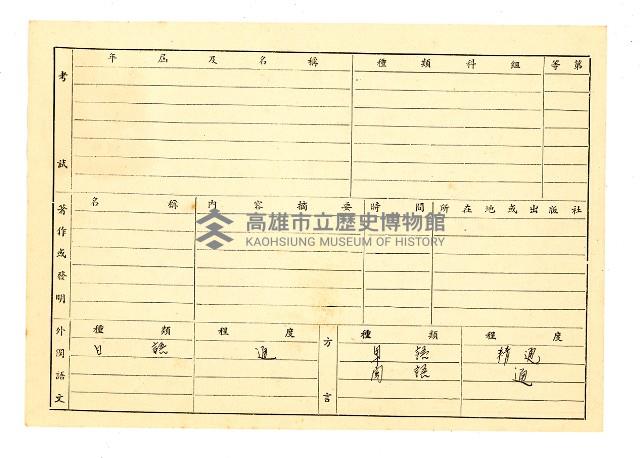 考試
年屆及名稱 種類科組 等第
高雄市立歷史博物館
KAOHSIUNG MUSEUM OF HISTORY
著作或發明
名稱 內容摘要 時間 所在地或出版社
外國語文
種類 程度
日語 通
方言
種類 程度
語 精通
國語 通